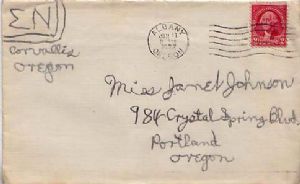 ΣN
Corvallis
Oregon
ALBANY
OREGON
Miss Janet Johnson
984 Crystal Spring Blvd.
Portland
Oregon